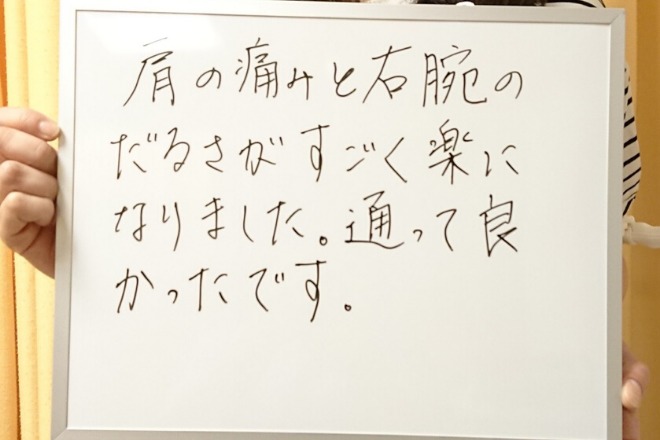 肩の痛みと右腕の
だるさがすごく楽に
なりました。通って良
かったです。